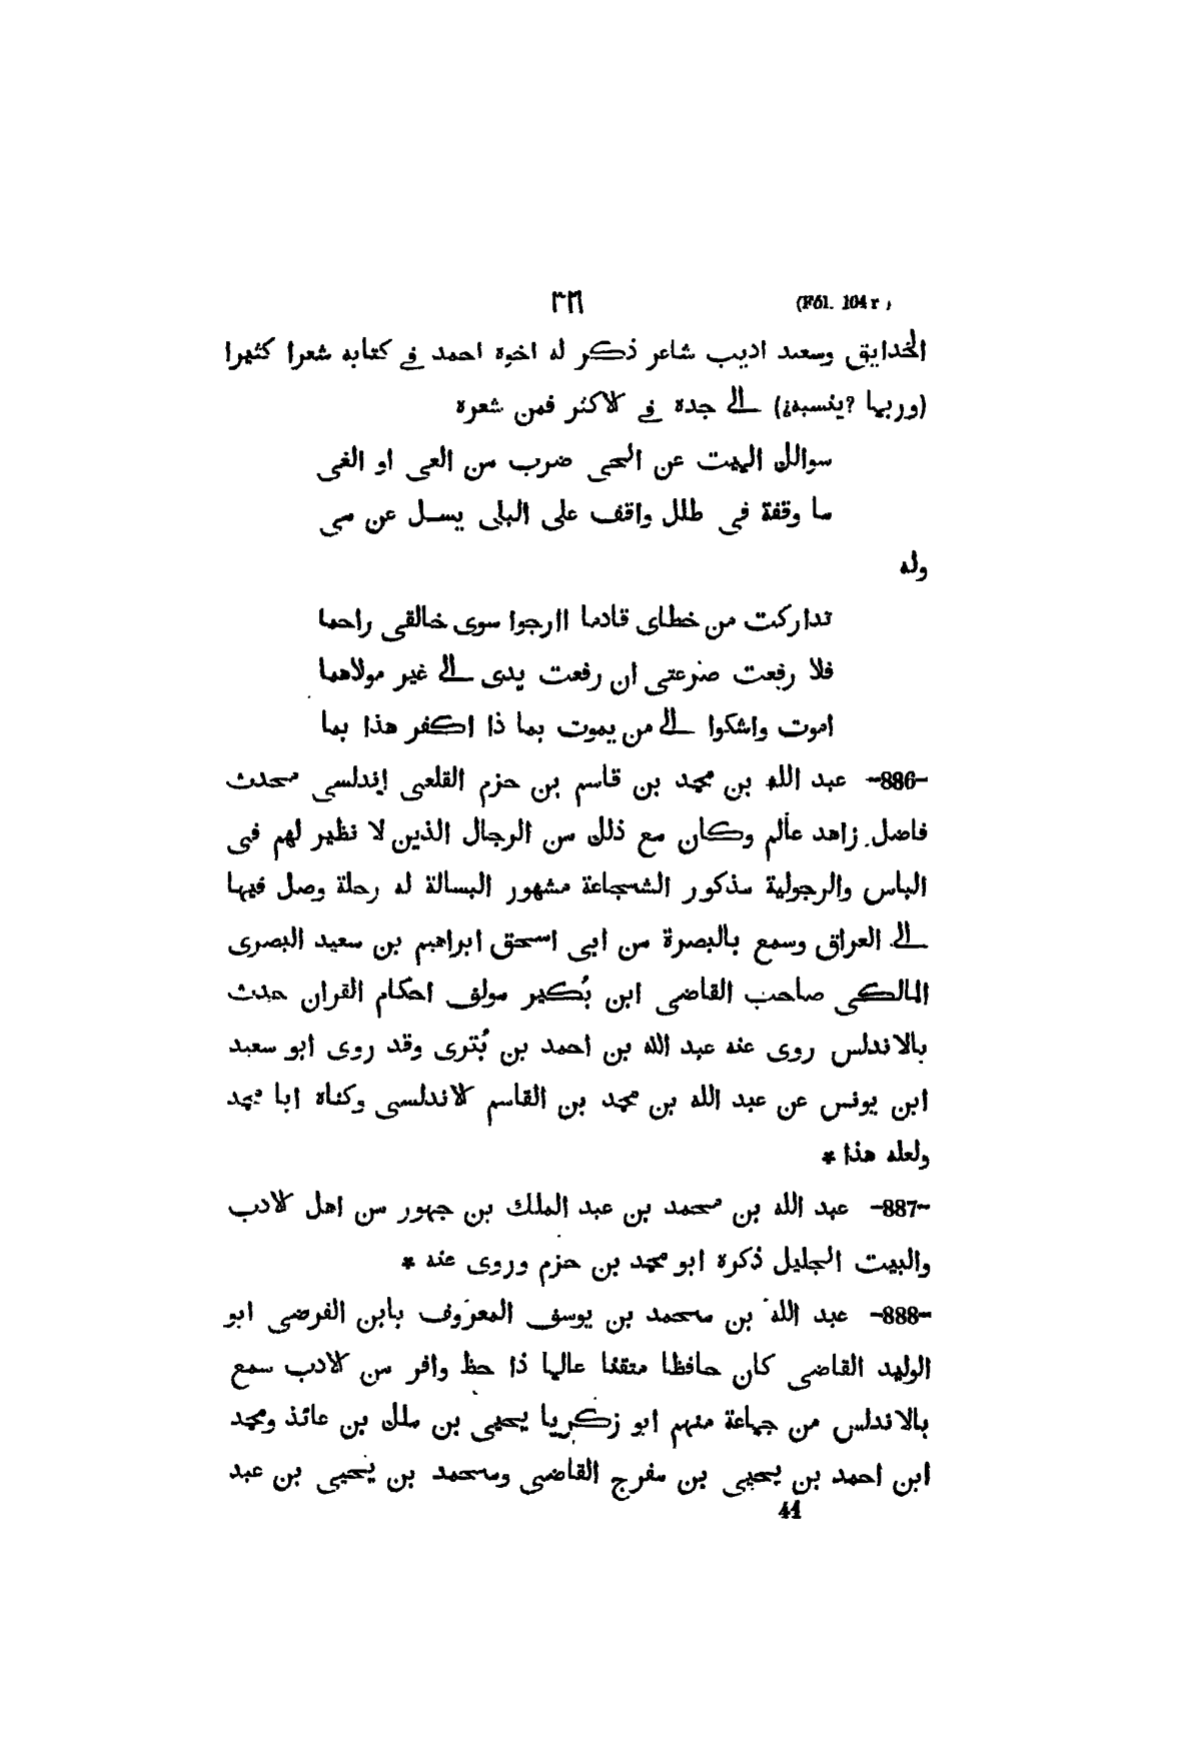 (Fól. 104 r) ٣٢٦
الحدايق وسعيد اديب شاعر ذكر له اخوه احمد في كتابه شعرا كثيرا
(وربما ?ينسبه¿) الى جده في الاكثر فمن شعره
سوالك البيت عن الحى ضرب من العى او الغى
ما وقفة فى طلل واقف على البلى يسل عن مى
وله
تداركت من خطاى قادما اارجوا سوى خالقى راحما
فلا رفعت ضرعتى ان رفعت يدى الى غير مولاهما
اموت واشكوا الى من يموت بما ذا اكفر هذا بما
-886- عبد الله بن محمد بن قاسم بن حزم القلعى اندلسى محدث
فاضل زاهد عالم وكان مع ذلك من الرجال الذين لا نظير لهم فى
الباس والرجولية مذكور الشجاعة مشهور البسالة له رحلة وصل فيها
الى العراق وسمع بالبصرة من ابى اسحق ابراهيم بن سعيد البصرى
المالكى صاحب القاضى ابن بُكير مولف احكام القران حدث
بالاندلس روى عنه عبد الله بن احمد بن بُترى وقد روى ابو سعيد
ابن يونس عن عبد الله بن محمد بن القاسم الاندلسى وكناه ابا محمد
ولعله هذا *
-887- عبد الله بن محمد بن عبد الملك بن جهور من اهل الادب
والبيت الجليل ذكره ابو محمد بن حزم وروى عنه *
-888- عبد الله بن محمد بن يوسف المعروف بابن الفرضى ابو
الوليد القاضى كان حافظا متقنا عالما ذا حظ وافر من الادب سمع
بالاندلس من جماعة منهم ابو زكريا يحيى بن ملك بن عائذ ومحمد
ابن احمد بن يحيى بن مفرج القاضى ومحمد بن يحيى بن عبد
44